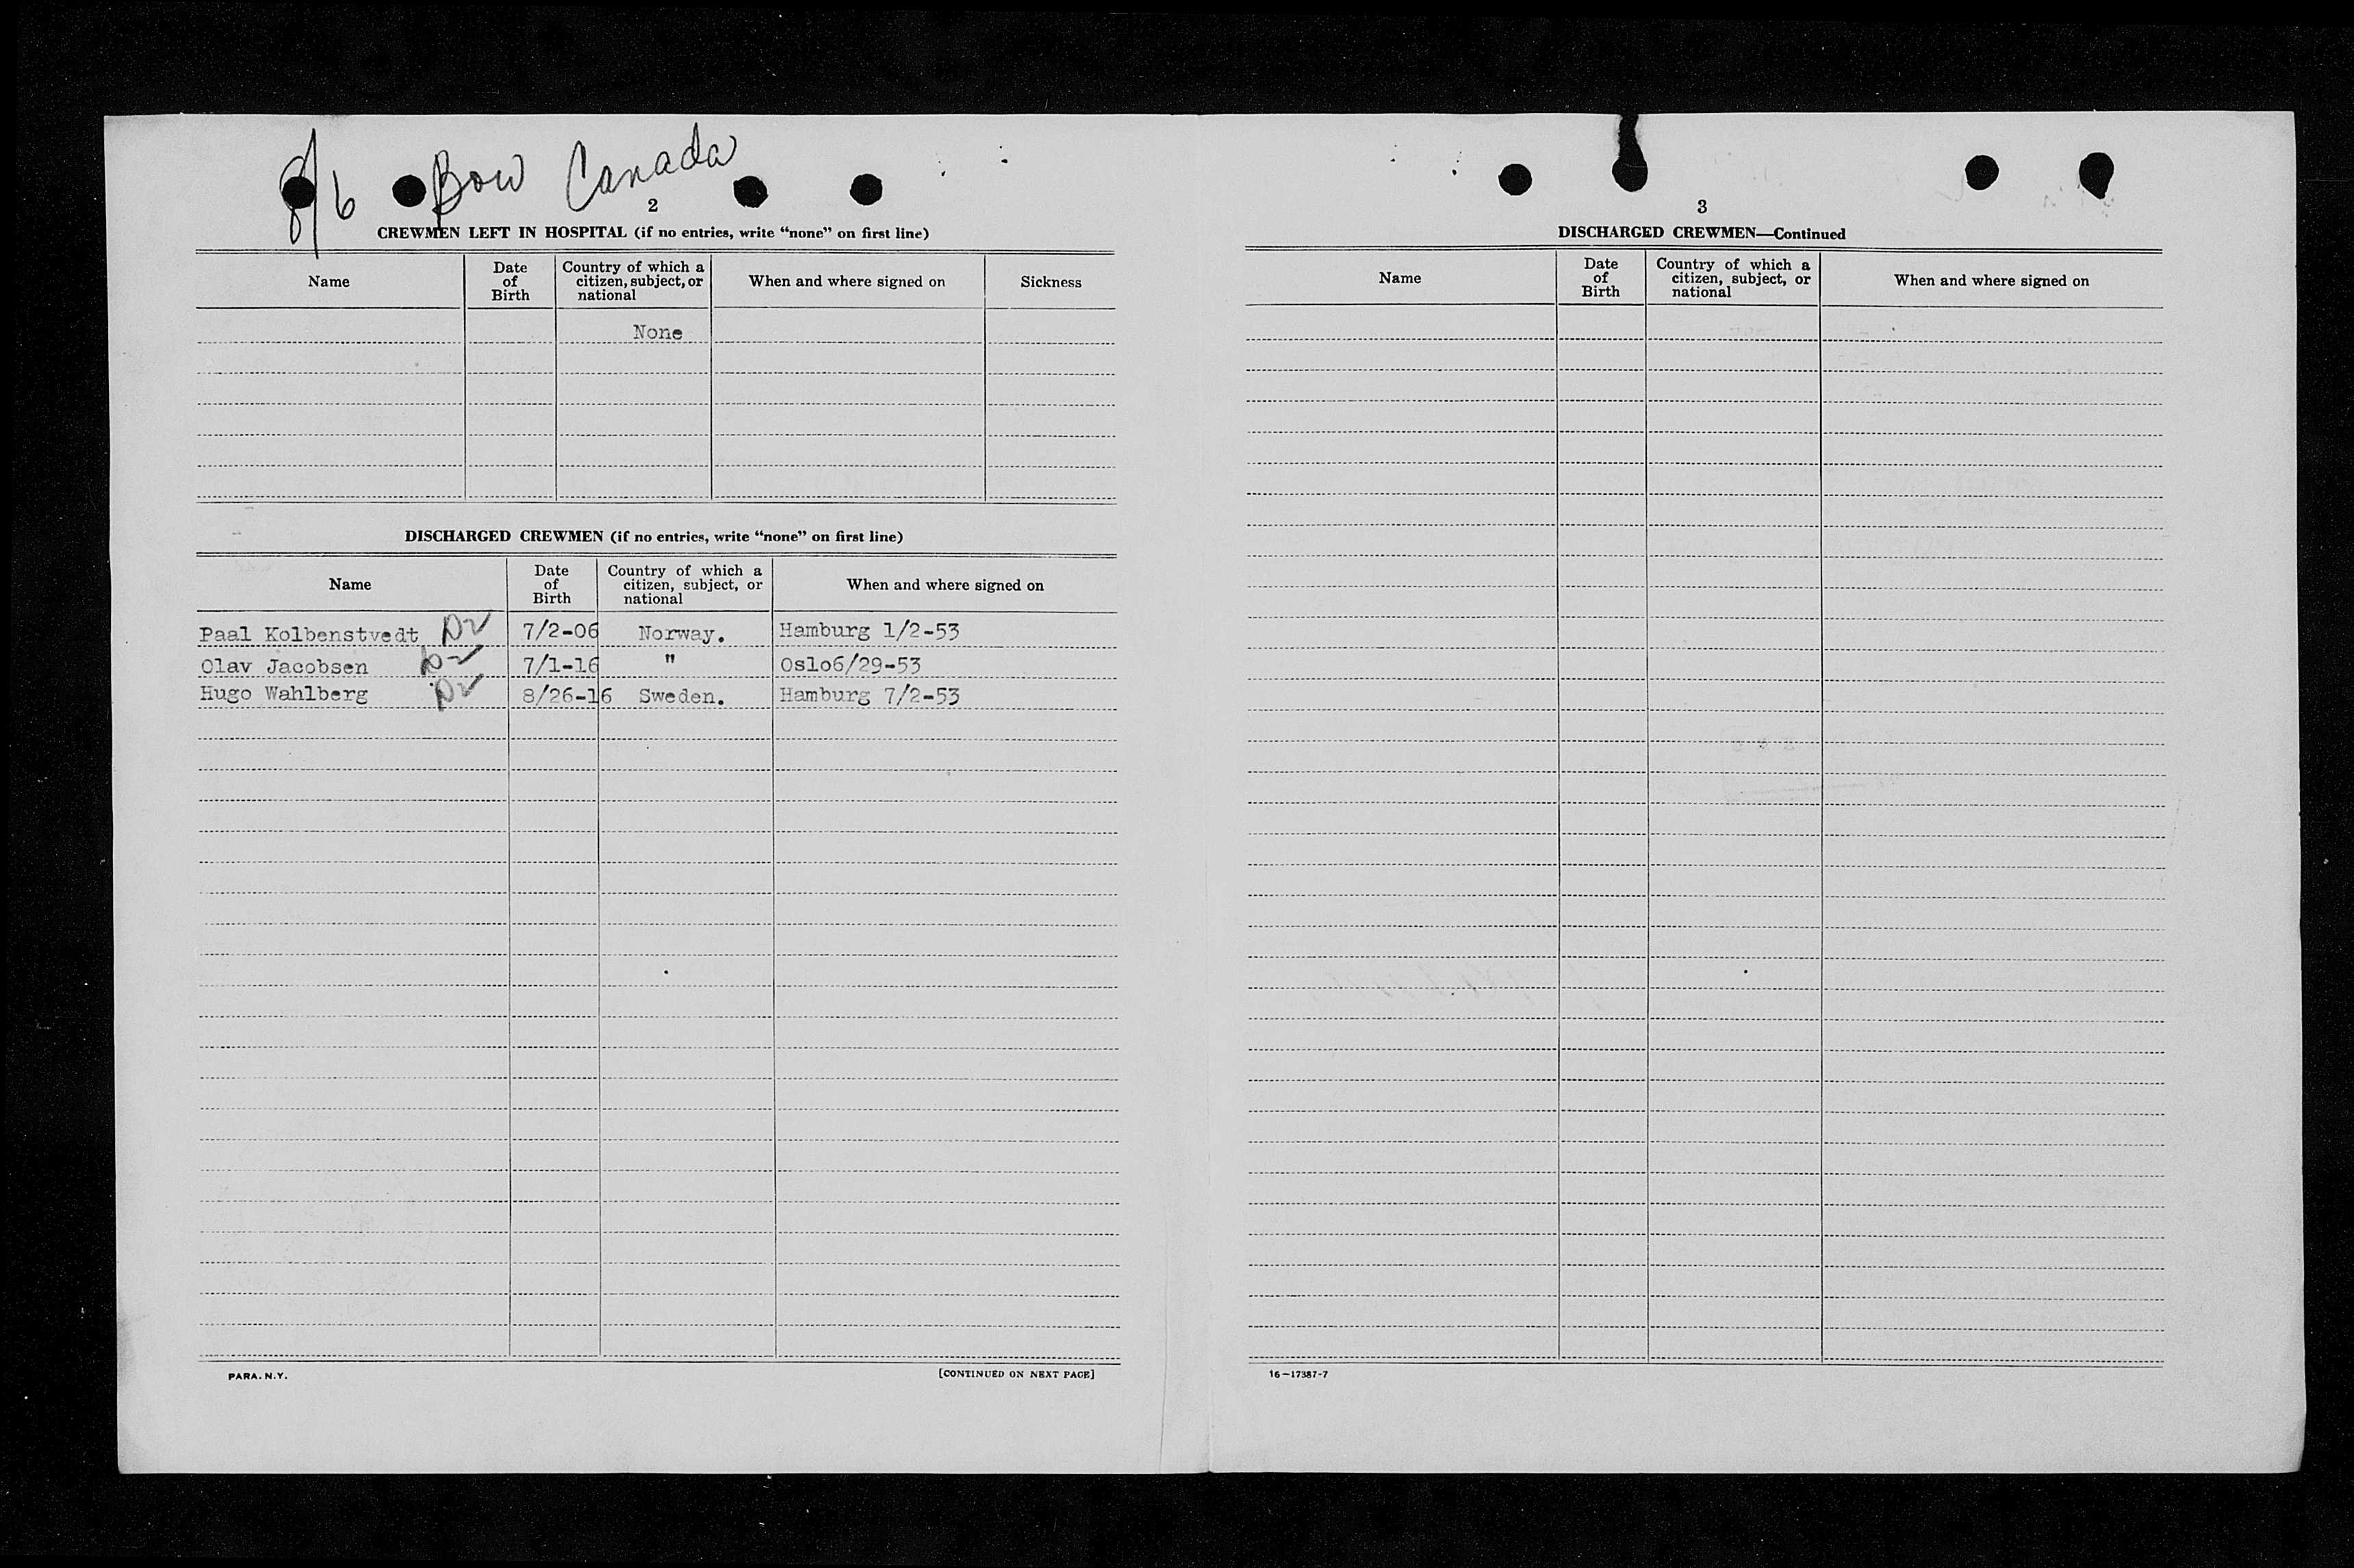 8/6 Bow Canada
2
CREWMEN LEFT IN HOSPITAL (if no entries, write "none" on first line)
Name
Date of Birth
Country of which a citizen, subject, or national
When and where signed on
Sickness
None
DISCHARGED CREWMEN (if no entries, write "none" on first line)
Name
Date of Birth
Country of which a citizen, subject, or national
When and where signed on
Paal Kolbenstvedt 7/2-06 Norway. Hamburg 1/2-53
Olav Jacobsen 7/1-16 " Oslo6/29-53
Hugo Wahlberg 8/26-16 Sweden. Hamburg 7/2-53
PARA. N.Y.
[CONTINUED ON NEXT PAGE]
3
DISCHARGED CREWMEN—Continued
Name
Date of Birth
Country of which a citizen, subject, or national
When and where signed on
16—17387-7